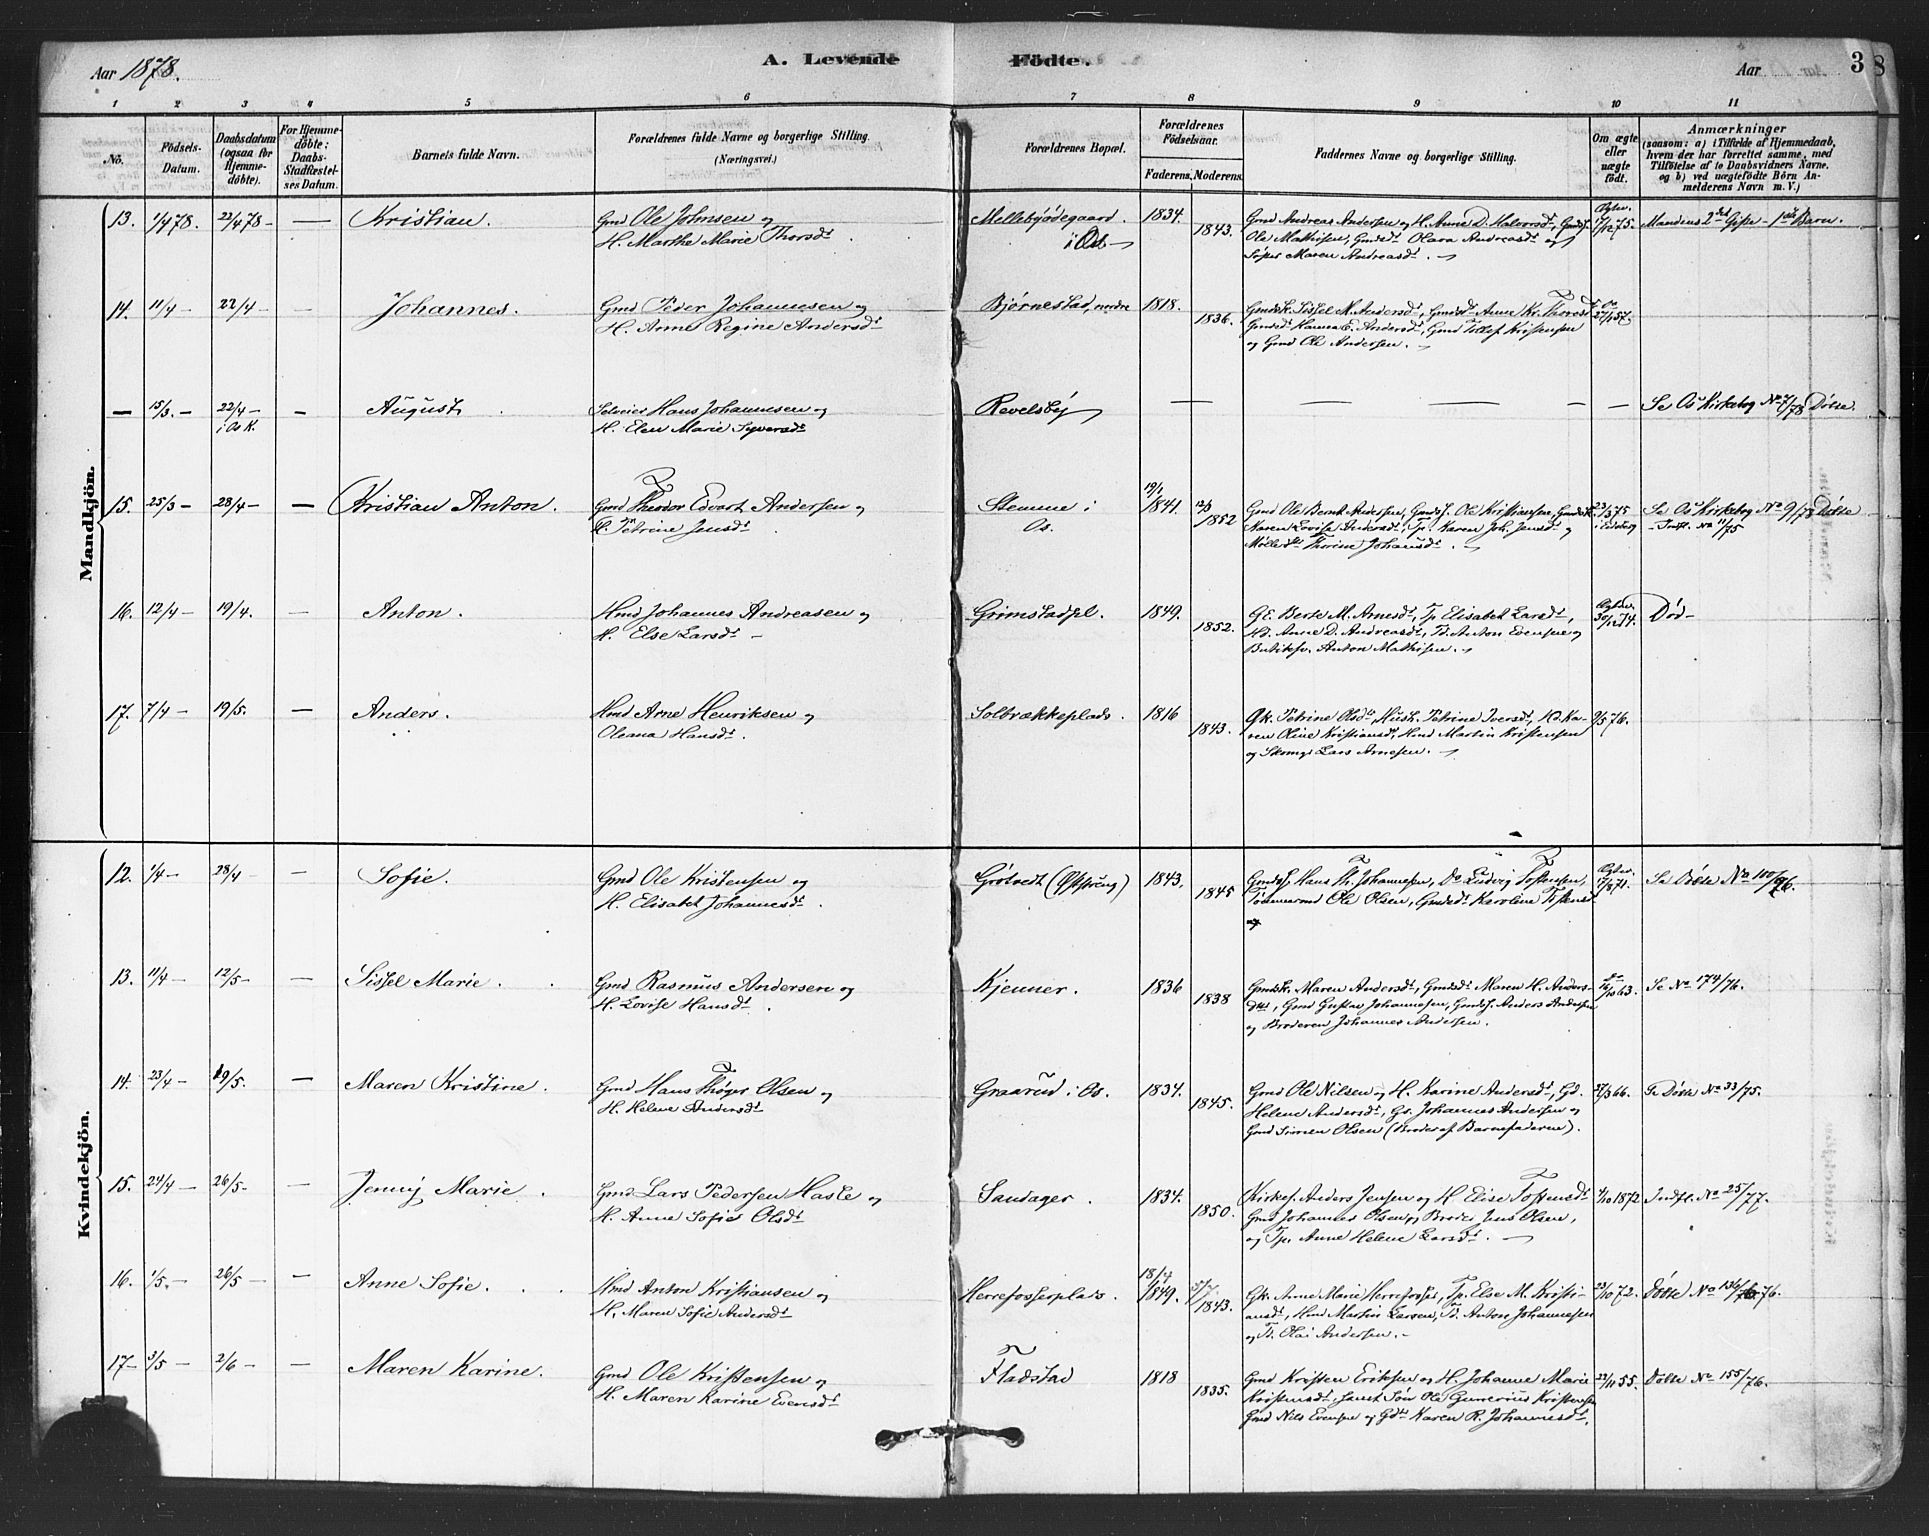 Aar 1878.
A. Levende Födte.
Aar
3
8
1 2 3 4 5 6 7 8 9 10 11
No.
Födsels-
Datum.
Daabsdatum
(ogsaa for
Hjemme-
döbte).
For Hjemme-
döbte;
Daabs-
Stadfæstel-
ses Datum.
Barnets fulde Navn.
Forældrenes fulde Navne og borgerlige Stilling.
(Næringsvei.)
Forældrenes Bopæl.
Forældrenes
Födselsaar.
Faderens. Moderens.
Faddernes Navne og borgerlige Stilling.
Om ægte
eller
uægte
födt.
Anmærkninger
(saasom: a) i Tilfælde af Hjemmedaab,
hvem der har forrettet samme, med
Tilföielse af to Daabsvidners Navne.
og b) ved uægtefödte Börn An-
melderens Navn m. V.)
Mandkjön.
13. 1/4 78. 22/4 78 — — Kristian. Gmd Ole Johnsen og
H. Marthe Marie Thorsdt
Mellebyödegaard
i Os —
1834. 1843.
Gmd Andreas Andersen og H. Anne D. Halvorsdt, Gmds.
Ole Mathisen, Gmdsdt Olava Andreasdt og
Maren Andreasdt. —
17/12 75. Mandens 2det Gifte — 1ste Barn.
14. 11/4 — 22/4 — — Johannes. Gmd Peder Johannesen og
H. Anne Regine Andersdt
Bjørnestad, nedre
1818. 1836.
Gmdsk. Sissel M. Andersdt, Gmdsdt Anne Kr. Thoresdt
Gmdsdt Hanna E. Andersdt, Gmd Tollef Kristensen
og Gmd Ole Andersen. —
27/1 57.
— 15/3 — 22/4 —
i Os K.
— August Selveier Hans Johannesen og
H. Elen Marie Syversdt
Revelsby
— — — — — — Se Os Kirkebog No 7/78 Døbte.
15. 25/3 — 28/4 — — Kristian Anton. Gmd Theodor Edvart Andersen og
H. Petrine Jensdt
Stemme i
Os.
19/1 1841. 12/3 1852
Gmd Ole Bernt Andersen, Gmds. Ole Kristiansen, Gmdsdt
Karen Lovise Andersdt, Tp. Karen Joh. Jensdt og
Mølledt Thorine Johansdt. —
23/3 75
Se Os Kirkebog No 9/78 Døbte
Indfl. No 11/75
16. 12/4 — 19/4. — Anton. Hmd Johannes Andreasen og
H. Else Larsdt —
Grimstadpl.
1849. 1852.
GE. Berte M. Arnesdt, Tp. Elisabet Larsdt,
Hd. Anne D. Andreasdt, Td. Anton Evensen og
Butiksv. Anton Mathisen. —
30/12 74. Død —
17. 7/4 — 19/5. — Anders. Hmd Arne Henriksen og
Oleana Hansdt.
Solbrækkeplads.
1816 1843.
Gk. Petrine Olsdt, Hush. Petrine Iversdt, Hd. Ka-
ren Oline Kristiansdt, Hmd Martin Kristensen
og Skomgr Lars Arnesen. —
9/5 76.
Kvindekjön.
12. 1/4 — 28/4 — Sofie. Gmd Ole Kristensen og
H. Elisabet Johannesdt.
Grötvedt (Østpreng)
1843. 1845
Gmds. Hans Th. Johannesen, Do Ludvig Tostensen,
Tømmermd Ole Olsen, Gmdsdt Karoline Tostensdt
Se Døbte No 100/76.
13. 11/4 — 12/5 — — Sissel Marie. Gmd Rasmus Andersen og
H. Lovise Hansdt.
Kjenner.
1836 1838
Gmdsk. Maren Andersdt, Gmdsdt Maren H. Anders-
dtr, Gmd Gustav Johannesen, Gmds. Anders Andersen
og Broderen Johannes Andersen.
16/10 63. Se No 174/76.
14. 23/4 — 19/5. — Maren Kristine. Gmd Hans Thøger Olsen og
H. Helene Andersdt
Graarud i Os.
1834. 1845.
Gmd Ole Nilsen og H. Karine Andersdt, Gd.
Helene Andersdt, Gs. Johannes Andersen og
Gmd Simen Olsen (Broder af Barnefaderen).
27/3 66. Døbte No 33/75.
15. 24/4 — 26/5 — — Jenny Marie. Gmd Lars Pedersen Hasle og
H. Anne Sofie Olsdt
Sandager.
1834. 1850.
Kirkes. Anders Jensen og H. Elise Tostensdt
Gmd Johannes Olsen og Broder Jens Olsen,
og Tp. Anne Helene Larsdt. —
4/10 1872 Indfl. No 25/77.
16. 1/5. — 26/5 — — Anne Sofie. Hmd Anton Kristiansen og
H. Maren Sofie Andersdt
Herrefosserplads.
18/4 1849. 5/7 1843.
Gk. Anne Marie Herrefosser, Tp. Else M. Kristi-
ansdt, Hmd Martin Larsen, Td. Anton Johannesen
og Td. Olai Andersen. —
23/10 72. Døbte No 136/76.
17 — 3/5 — 2/6 — — Maren Karine. Gmd Ole Kristensen og
H. Maren Karine Evensdt
Fladstad
1818 1835.
Gmd Kristen Eriksen og H. Johanne Marie
Kristensdt, samt Søn Ole Gunerius Kristensen
Gmd Nils Evensen og Gdt Karen R. Johannesdt.
23/11 55. Døbte No 155/76.